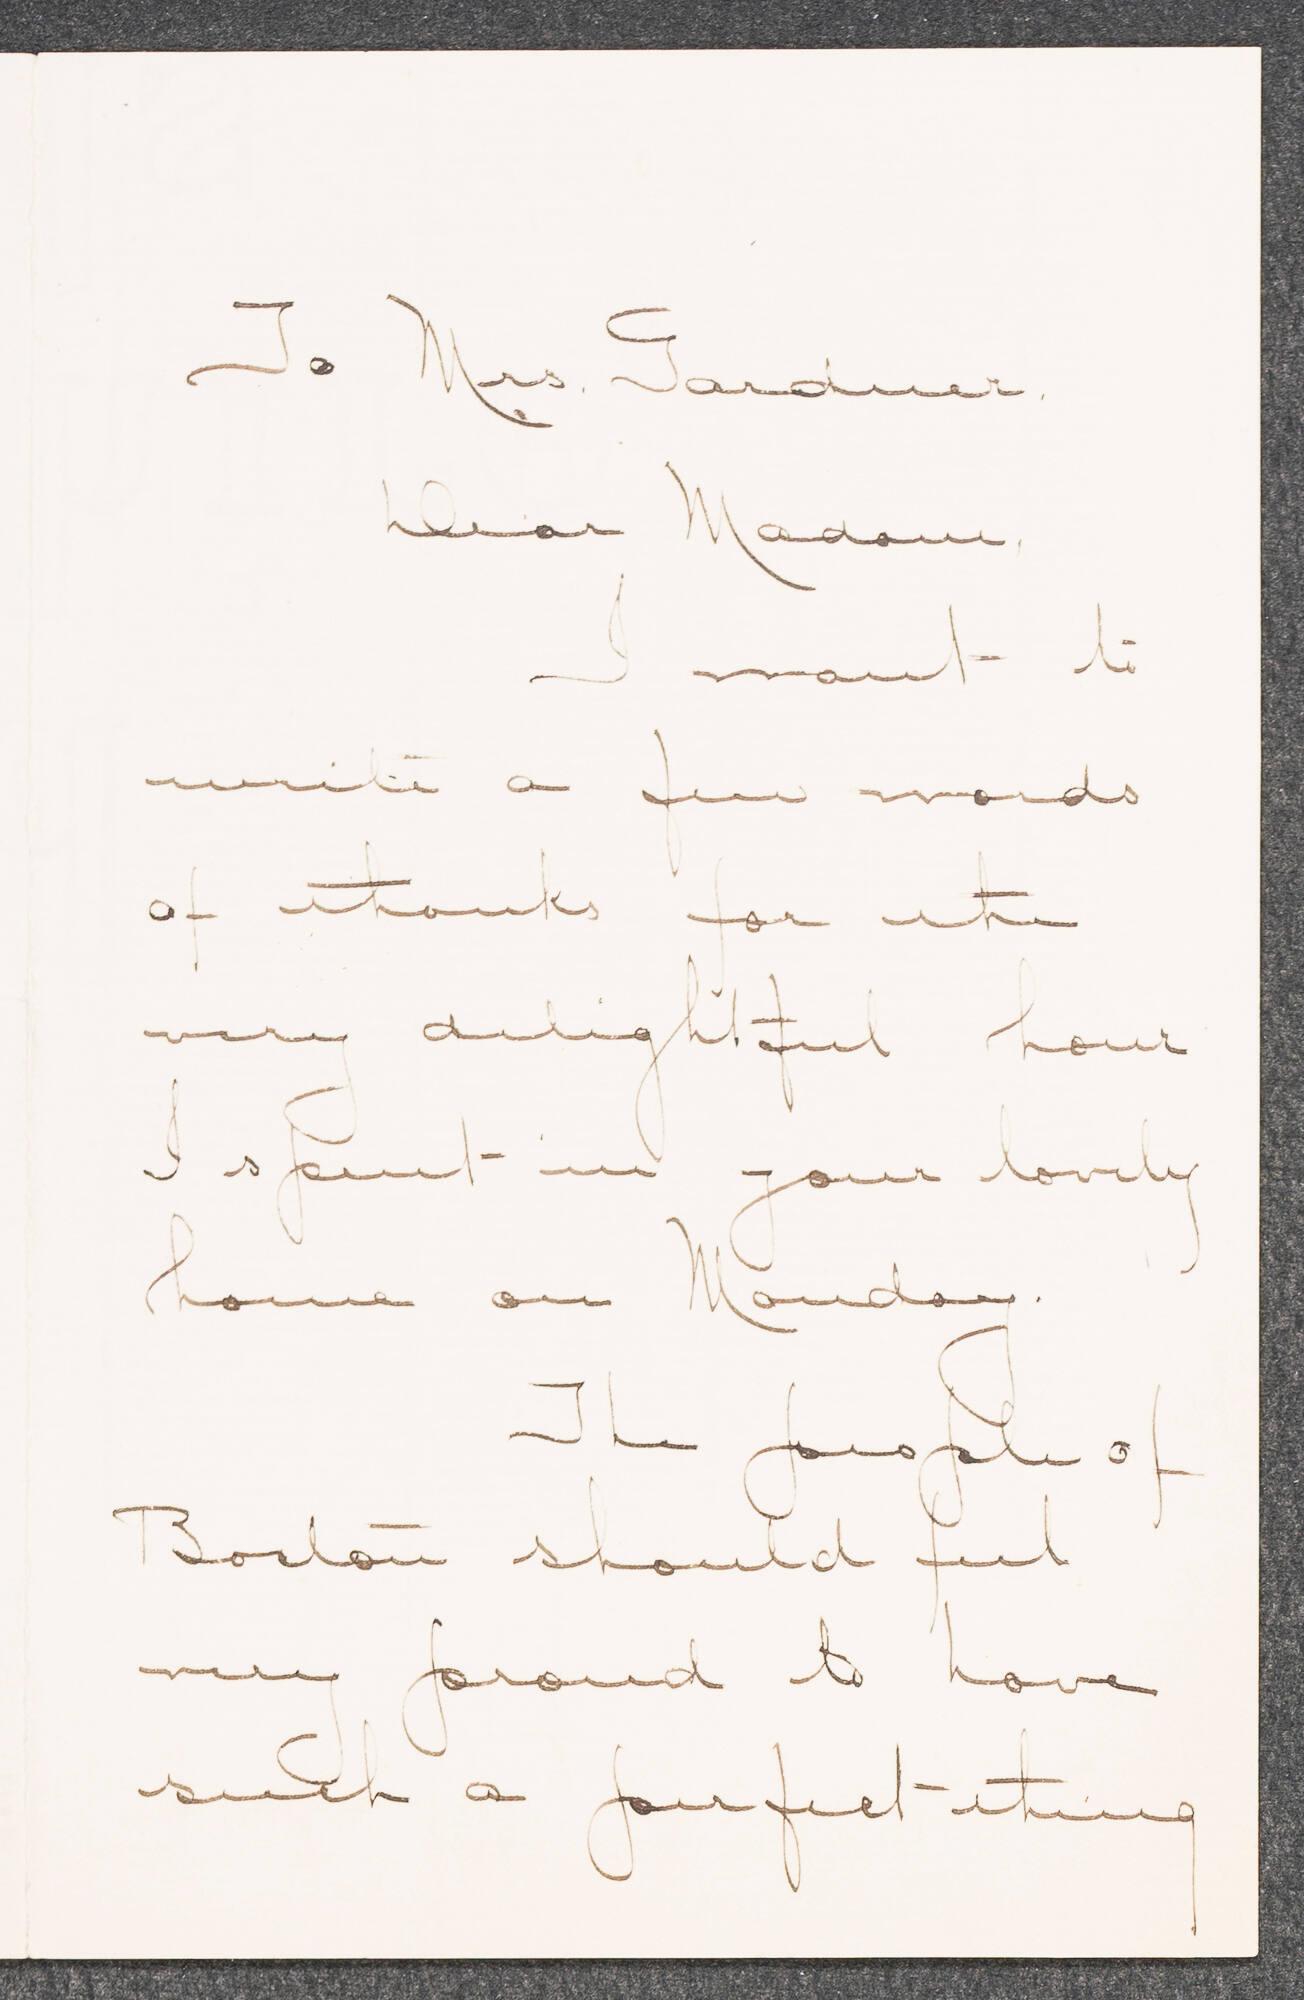 To Mrs. Gardner.
Dear Madam,
I want to
write a few words
of thanks for the
very delightful hour
I spent in your lovely
home on Monday.
The people of
Boston should feel
very proud to have
such a perfect thing